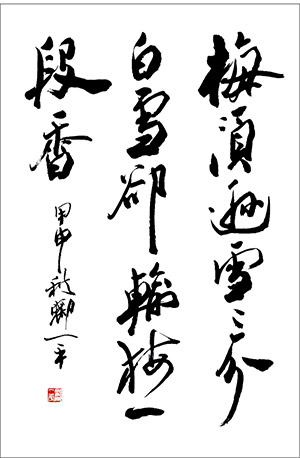 梅須遜雪三分
白雪卻輸梅一
段香
甲申秋鄭一平